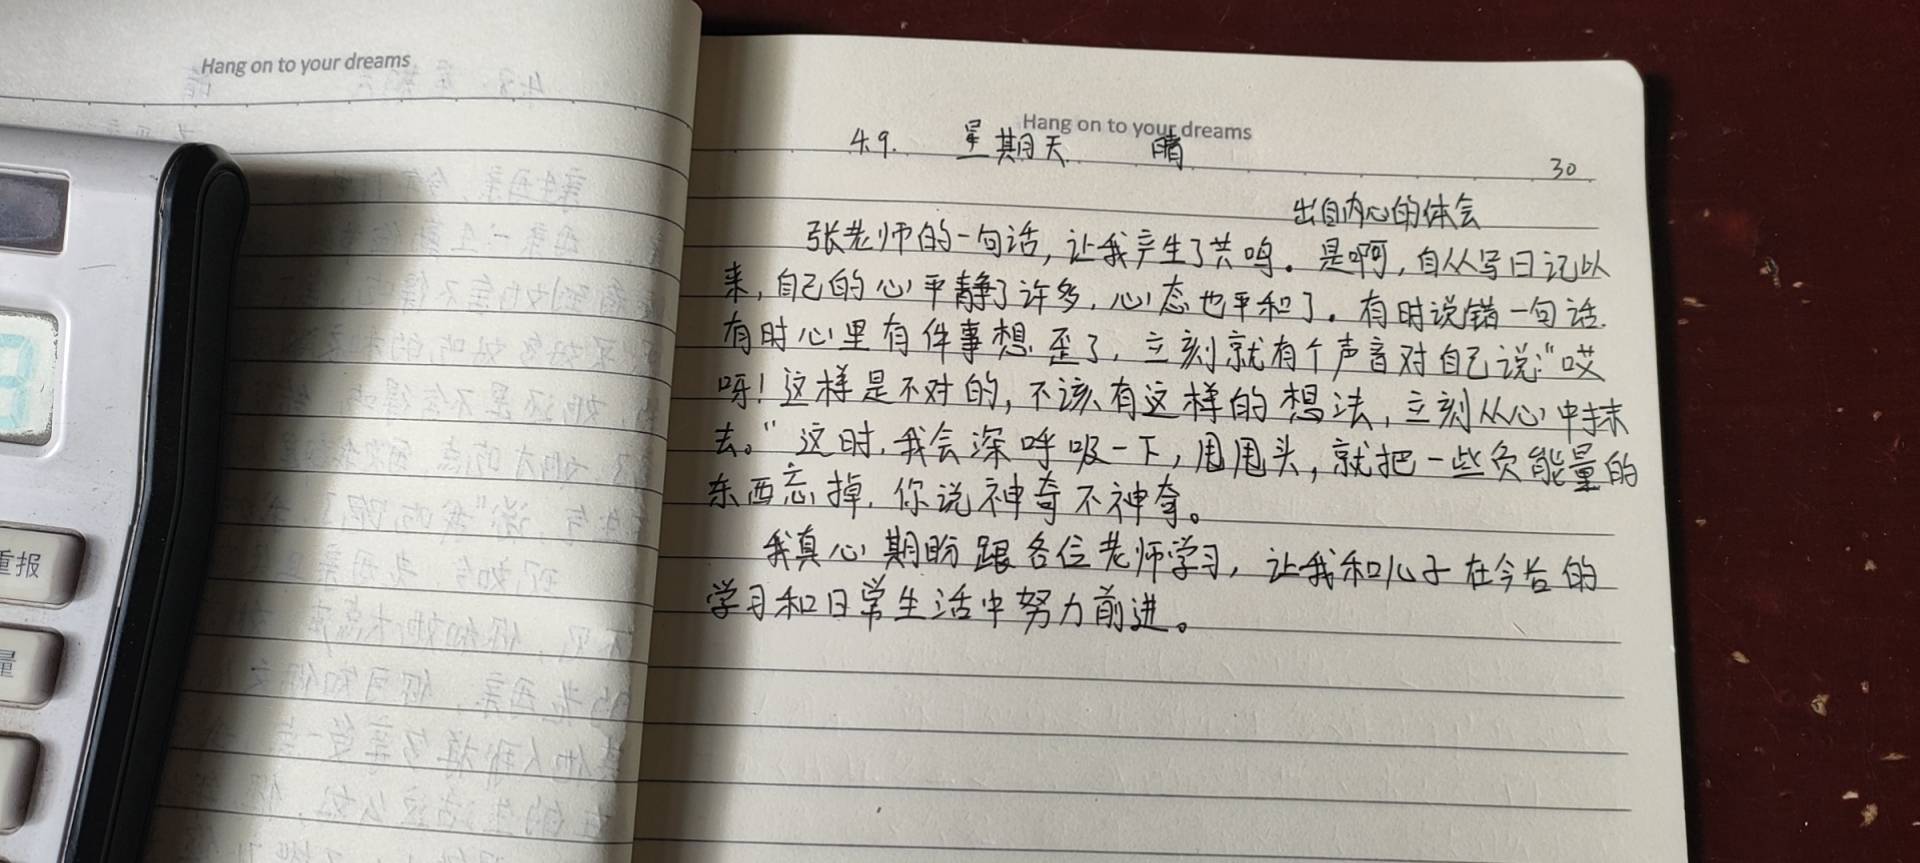 Hang on to your dreams
重报
量
Hang on to your dreams
4.9. 星期天 晴
30
出自内心的体会
张老师的一句话,让我产生了共鸣。是啊,自从写日记以
来,自己的心平静了许多,心态也平和了。有时说错一句话.
有时心里有件事想歪了,立刻就有个声音对自己说:“哎
呀!这样是不对的,不该有这样的想法,立刻从心中抹
去。”这时,我会深呼吸一下,甩甩头,就把一些负能量的
东西忘掉,你说神奇不神奇。
我真心期盼跟各位老师学习,让我和儿子在今后的
学习和日常生活中努力前进。